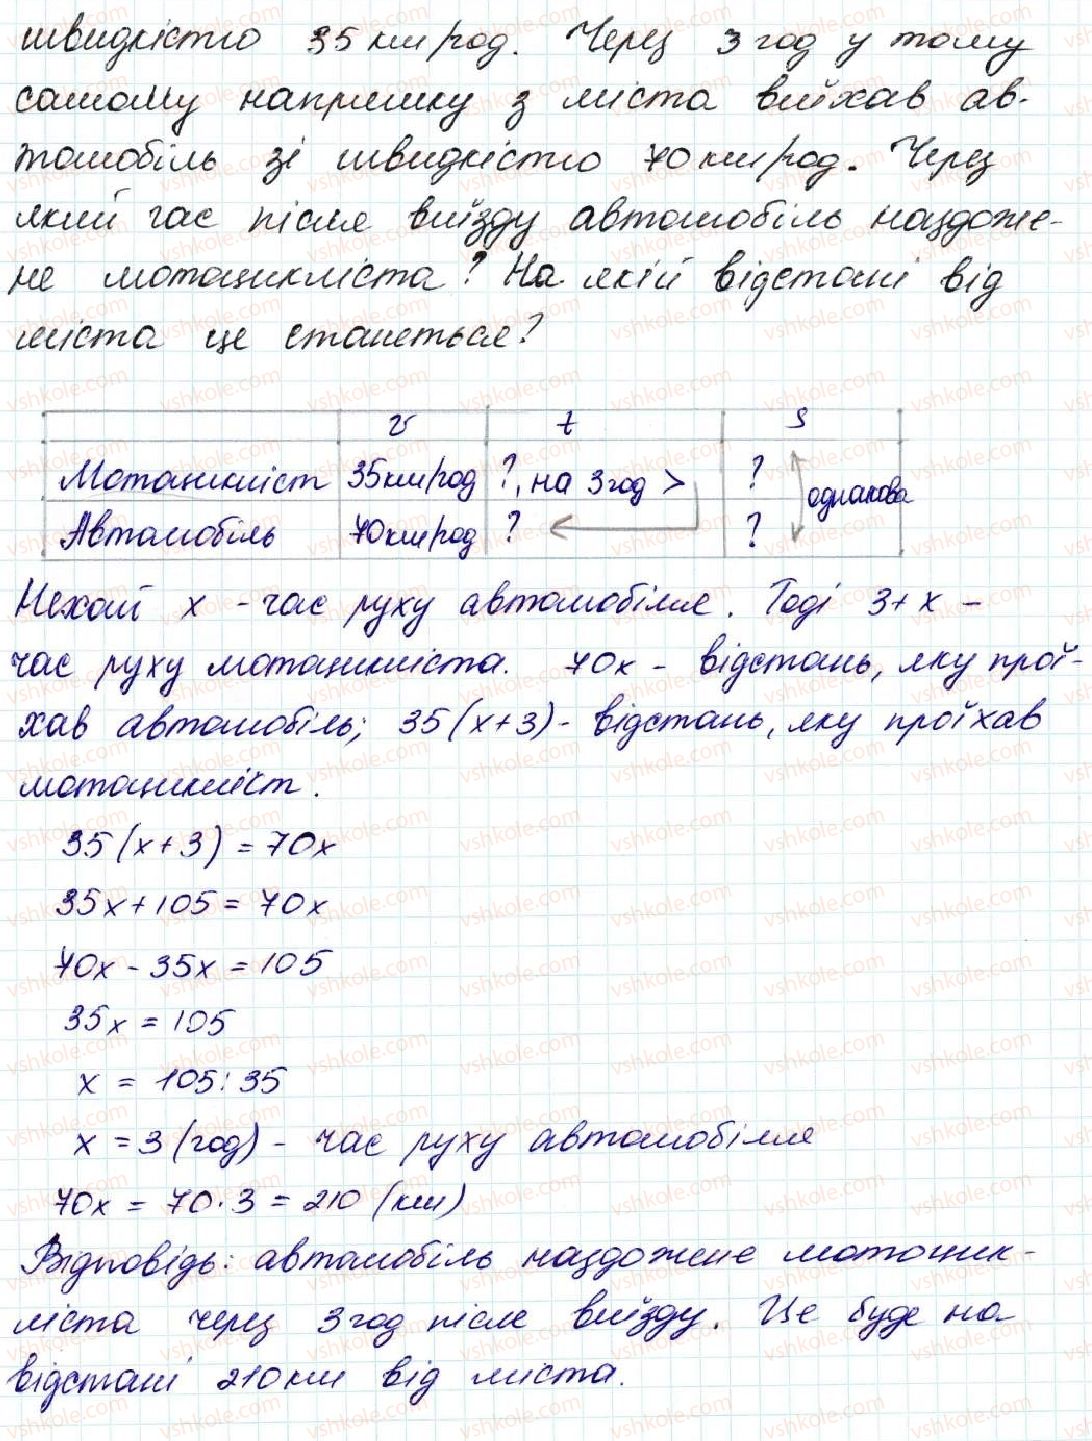 швидкістю 35 км/год. Через 3 год у тому
самому напрямку з міста виїхав ав-
томобіль зі швидкістю 70 км/год. Через
який час після виїзду автомобіль наздоже-
не мотоцикліста? На якій відстані від
міста це станеться?
v t s
Мотоцикліст 35 км/год ?, на 3 год > ?
однакова
Автомобіль 70 км/год ? ?
Нехай х - час руху автомобіля. Тоді 3+х -
час руху мотоцикліста. 70х - відстань, яку прої-
хав автомобіль; 35(х+3) - відстань, яку проїхав
мотоцикліст.
35(х+3) = 70х
35х+105 = 70х
70х - 35х = 105
35х = 105
х = 105:35
х = 3 (год) - час руху автомобіля
70х = 70·3 = 210 (км)
Відповідь: автомобіль наздожене мотоцик-
ліста через 3 год після виїзду. Це буде на
відстані 210 км від міста.